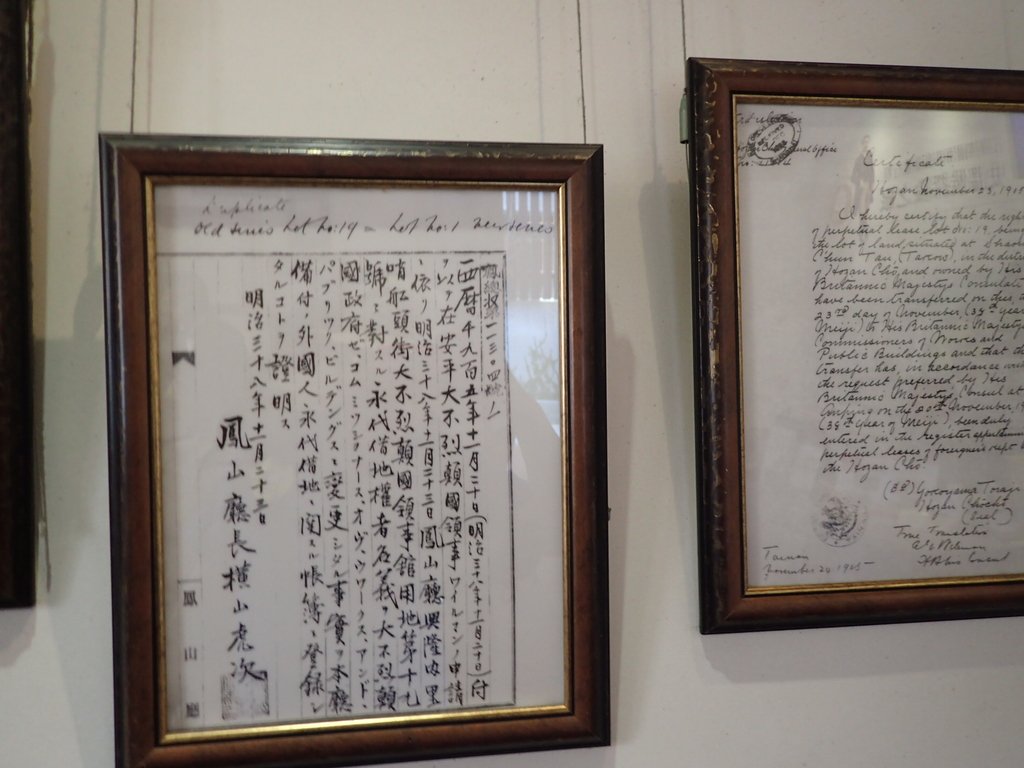 Duplicate
Old series Lot No: 19 = Lot No: 1 New series
鳳總收第一一三〇四號ノ一
西曆千九百五年十一月二十日(明治三十八年十一月二十日)付
ヲ以テ在安平大不烈顛國領事ウイルマンノ申請
ニ依リ明治三十八年十一月二十三日鳳山廳興隆內里
哨船頭街大不烈顛國領事館用地第十九
號ニ對スル永代借地權者名義ヲ大不烈顛
國政府ゼ、コムミッショナース、オヴ、ウワークス、アンド、
パブリック、ビルデングスト變更シタル事實ヲ本廳
備付ノ外國人永代借地ニ關スル帳簿ニ登錄シ
タルコトヲ證明ス
明治三十八年十一月二十三日
鳳山廳長橫山虎次
鳳山廳
Certificate
Hozan November 23, 1905
I hereby certify that the right
of perpetual lease lot No: 19, being
the lot of land, situated at Shao
Chun Tau, (Takow), in the district
of Hozan Cho, and owned by His
Britannic Majesty's Consulate
have been transferred on this the
23rd day of November, (38th year
Meiji) to His Britannic Majesty's
Commissioners of Works and
Public Buildings and that the
transfer has, in accordance with
the request preferred by His
Britannic Majesty's Consul at
Anping on the 20th November, 19
(38th year of Meiji), been duly
entered in the register appertaining
perpetual leases of foreigners kept in
the Hozan Cho.
Yokoyama Toraji
Hozan Chocho
(Seal)
True Translation
HBM's Consul
Tainan
November 20 1905